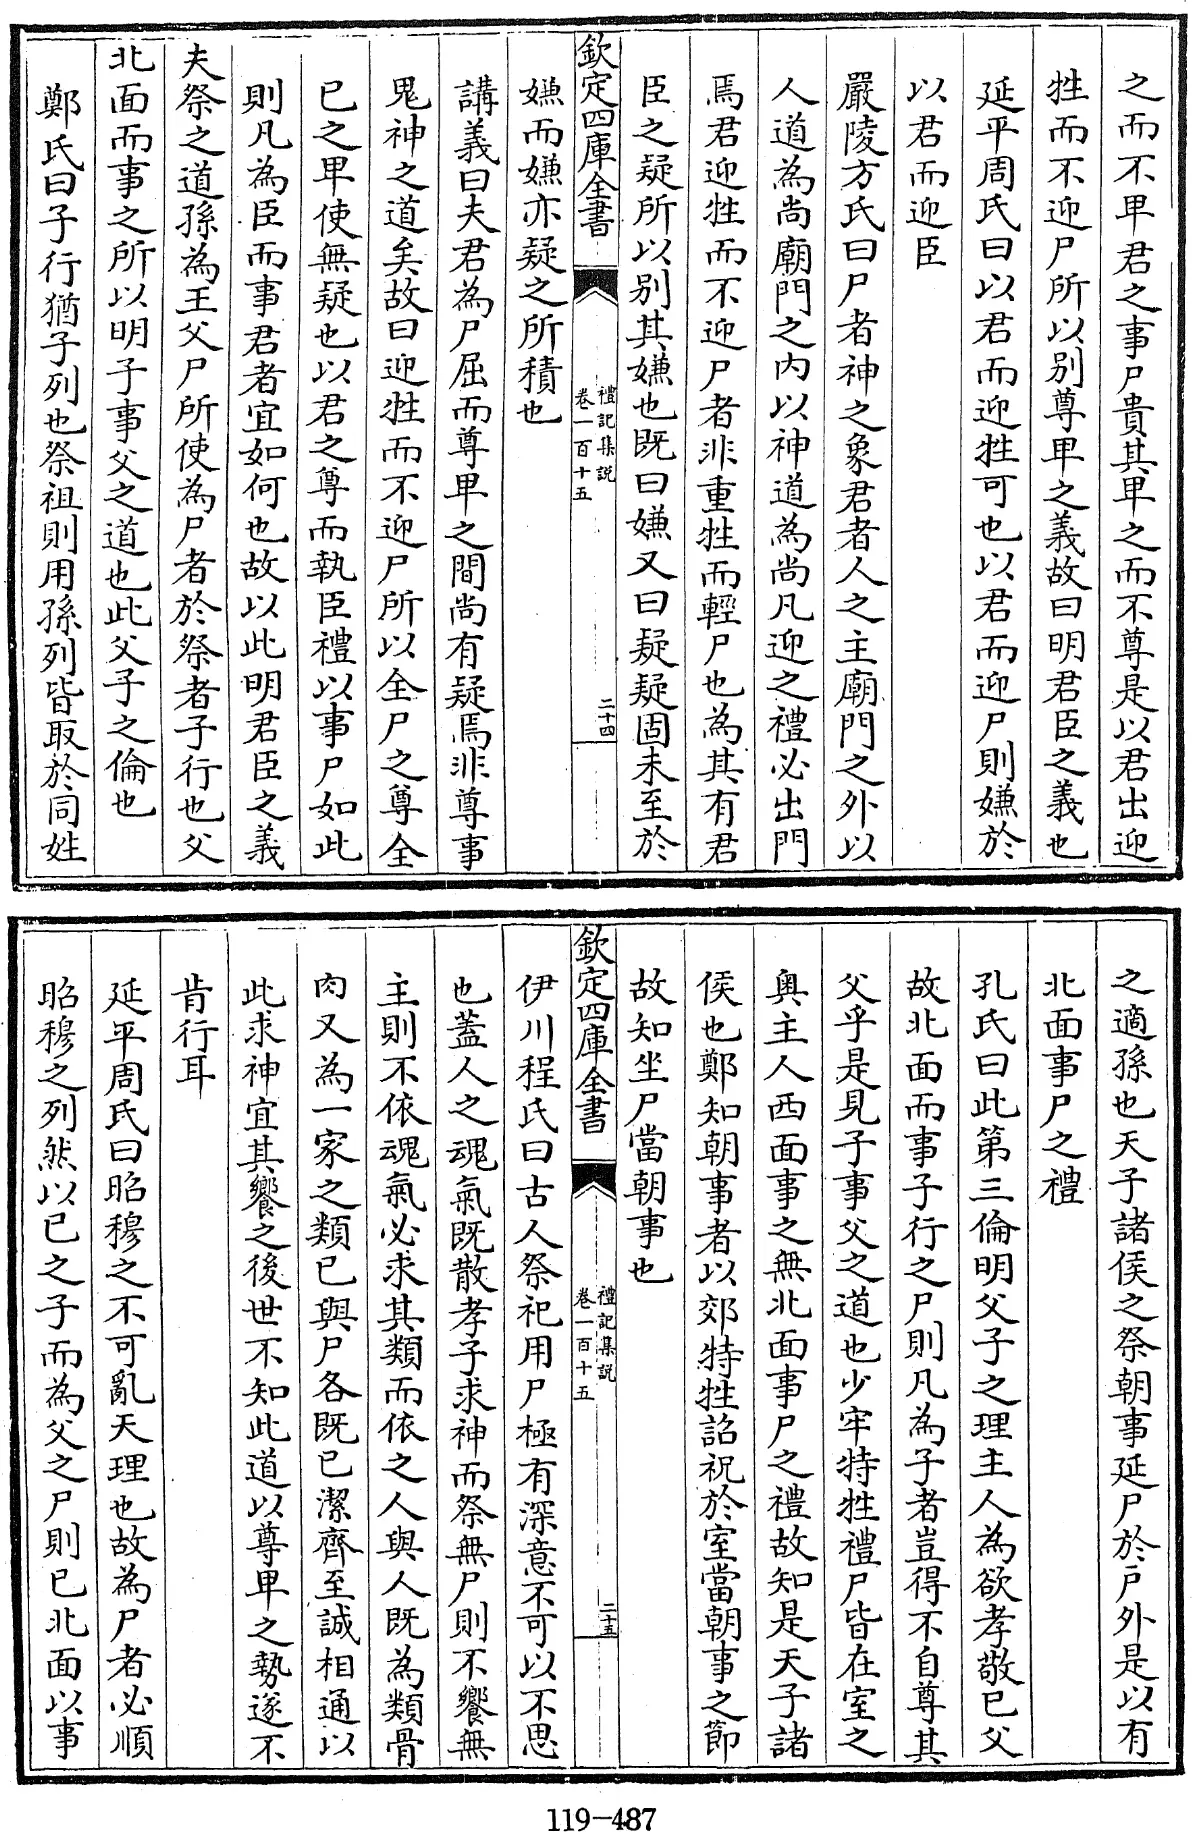 之而不卑君之事尸貴其卑之而不尊是以君出迎
牲而不迎尸所以别尊卑之義故曰明君臣之義也
延平周氏曰以君而迎牲可也以君而迎尸則嫌於
以君而迎臣
嚴陵方氏曰尸者神之象君者人之主廟門之外以
人道為尚廟門之内以神道為尚凡迎之禮必出門
焉君迎牲而不迎尸者非重牲而輕尸也為其有君
臣之疑所以别其嫌也既曰嫌又曰疑疑固未至於
欽定四庫全書
禮記集説
卷一百十五
二十四
嫌而嫌亦疑之所積也
講義曰夫君為尸屈而尊卑之間尚有疑焉非尊事
鬼神之道矣故曰迎牲而不迎尸所以全尸之尊全
已之卑使無疑也以君之尊而執臣禮以事尸如此
則凡為臣而事君者宜如何也故以此明君臣之義
夫祭之道孫為王父尸所使為尸者於祭者子行也父
北面而事之所以明子事父之道也此父子之倫也
鄭氏曰子行猶子列也祭祖則用孫列皆取於同姓
之適孫也天子諸侯之祭朝事延尸於户外是以有
北面事尸之禮
孔氏曰此第三倫明父子之理主人為欲孝敬已父
故北面而事子行之尸則凡為子者豈得不自尊其
父乎是見子事父之道也少牢特牲禮尸皆在室之
奥主人西面事之無北面事尸之禮故知是天子諸
侯也鄭知朝事者以郊特牲詔祝於室當朝事之節
故知坐尸當朝事也
欽定四庫全書
禮記集説
卷一百十五
二十五
伊川程氏曰古人祭祀用尸極有深意不可以不思
也蓋人之魂氣既散孝子求神而祭無尸則不饗無
主則不依魂氣必求其類而依之人與人既為類骨
肉又為一家之類已與尸各既已潔齊至誠相通以
此求神宜其饗之後世不知此道以尊卑之勢遂不
肯行耳
延平周氏曰昭穆之不可亂天理也故為尸者必順
昭穆之列然以已之子而為父之尸則已北面以事
119-487